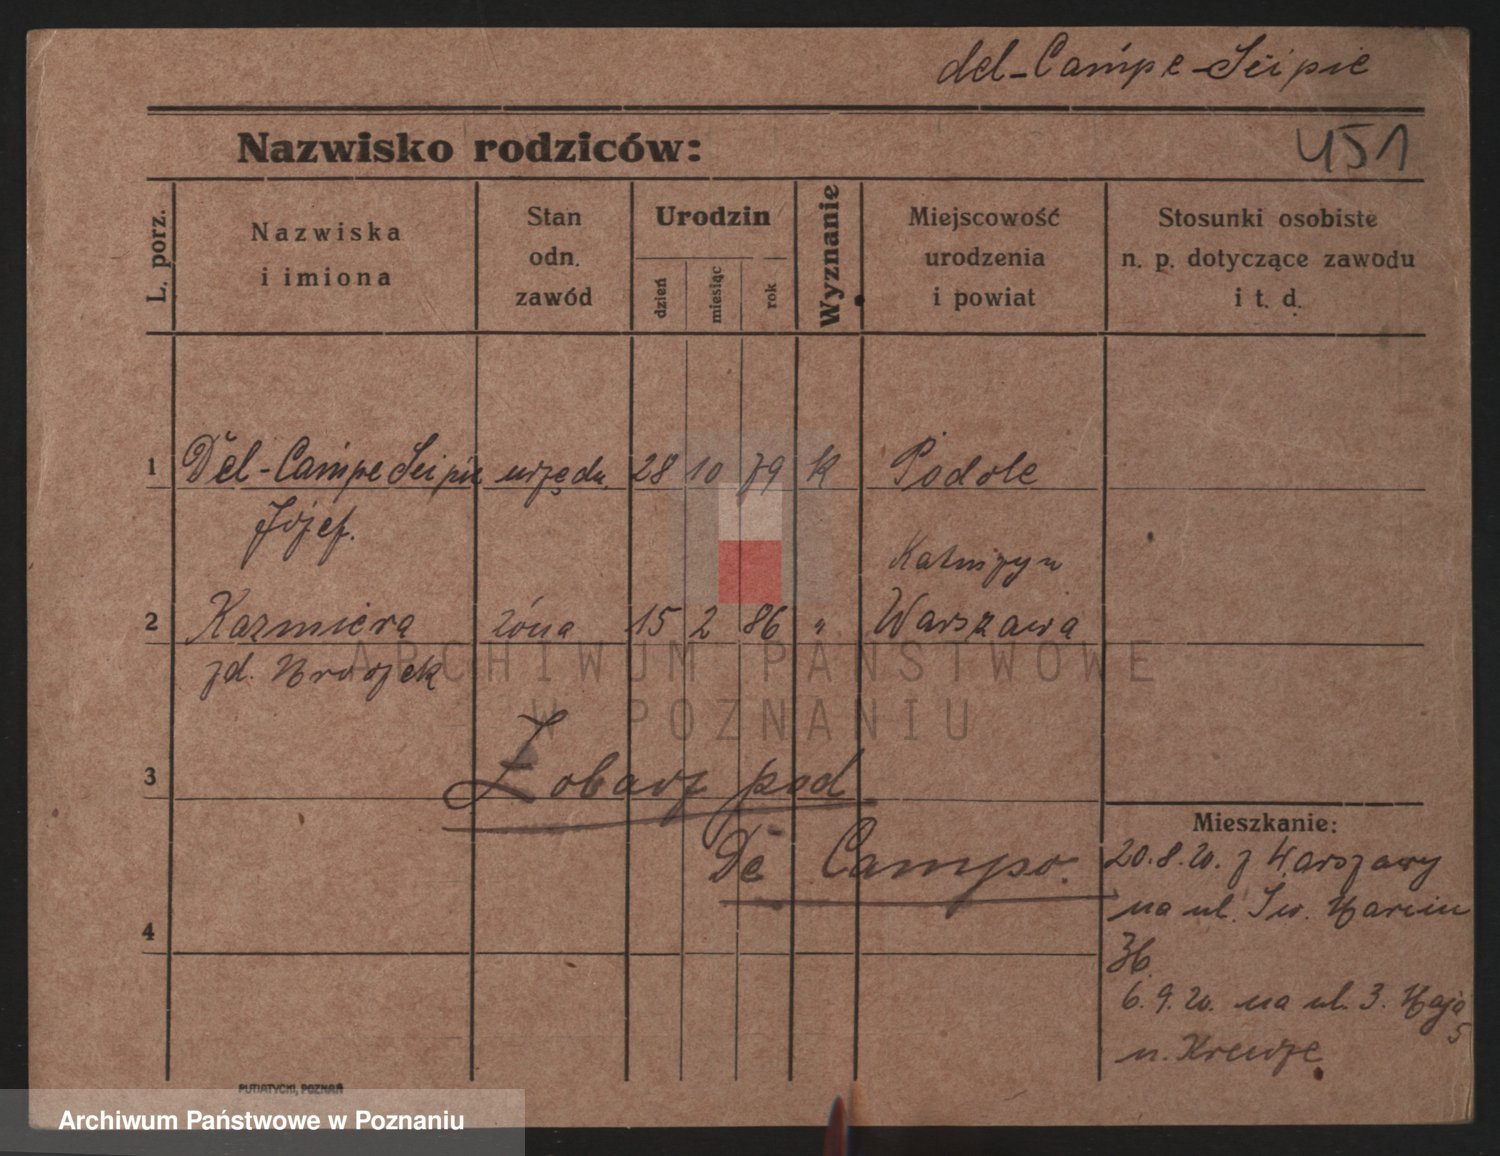 del-Campe-Scipie
Nazwisko rodziców:
451
L. porz.
Nazwiska
i imiona
Stan
odn.
zawód
Urodzin
dzień
miesiąc
rok
Wyznanie
Miejscowość
urodzenia
i powiat
Stosunki osobiste
n. p. dotyczące zawodu
i t. d.
1 Del-Campe Scipie urzędn. 28 10 79 k Podole
Józef.
2 Kazmiera żona 15 2 86 " Warszawa
zd.
3 Zobacz pod
De Campo.
4
Mieszkanie:
20.8.20. z Warszawy
na ul. Św. Marcin
36.
6.9.20. na ul. 3. Maja
5
u.
PUTIATYCKI, POZNAŃ
ARCHIWUM PAŃSTWOWE
W POZNANIU
Archiwum Państwowe w Poznaniu